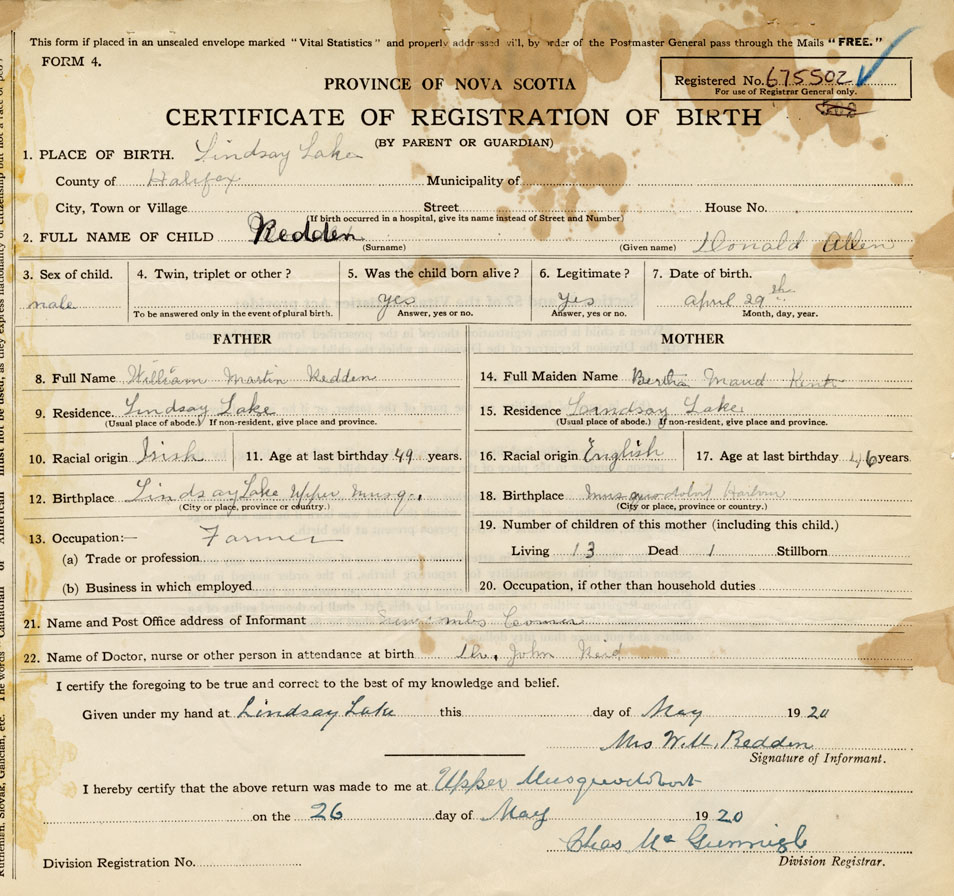 This form if placed in an unsealed envelope marked "Vital Statistics" and properly addressed will, by order of the Postmaster General pass through the Mails "FREE."
FORM 4.
Registered No. 675502
For use of Registrar General only.
PROVINCE OF NOVA SCOTIA
CERTIFICATE OF REGISTRATION OF BIRTH
(BY PARENT OR GUARDIAN)
1. PLACE OF BIRTH. Lindsay Lake
County of Halifax Municipality of
City, Town or Village Street House No.
(If birth occurred in a hospital, give its name instead of Street and Number)
2. FULL NAME OF CHILD Redden Donald Allen
(Surname) (Given name)
3. Sex of child. 4. Twin, triplet or other? 5. Was the child born alive? 6. Legitimate? 7. Date of birth.
male yes yes April 29th
To be answered only in the event of plural birth. Answer, yes or no. Answer, yes or no. Month, day, year.
FATHER MOTHER
8. Full Name William Martin Redden 14. Full Maiden Name Bertha Maud Kent
9. Residence. Lindsay Lake 15. Residence Landsay Lake
(Usual place of abode.) If non-resident, give place and province. (Usual place of abode.) If non-resident, give place and province.
10. Racial origin Irish 11. Age at last birthday 49 years. 16. Racial origin English 17. Age at last birthday 46 years.
12. Birthplace Lindsay Lake Upper Musq. 18. Birthplace Musquodoboit Harbour
(City or place, province or country.) (City or place, province or country.)
13. Occupation:— Farmer 19. Number of children of this mother (including this child.)
(a) Trade or profession Living 13 Dead 1 Stillborn
(b) Business in which employed 20. Occupation, if other than household duties
21. Name and Post Office address of Informant Corner
22. Name of Doctor, nurse or other person in attendance at birth Dr. John Reid
I certify the foregoing to be true and correct to the best of my knowledge and belief.
Given under my hand at Lindsay Lake this day of May 1920
Mrs W. M. Redden
Signature of Informant.
I hereby certify that the above return was made to me at Upper Musquodoboit
on the 26 day of May 1920
Chas Mc
Division Registration No. Division Registrar.